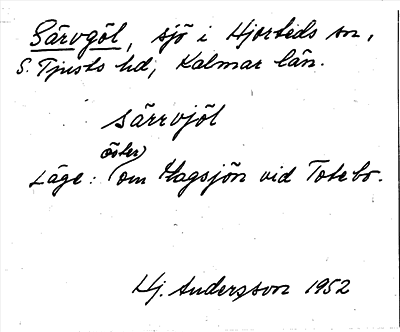 Särvgöl, sjö i Hjorteds sn,
S. Tjusts hd, Kalmar län.
särrvjöl
Läge: öster om Hagsjön vid Totebo.
Hj. Andersson 1952